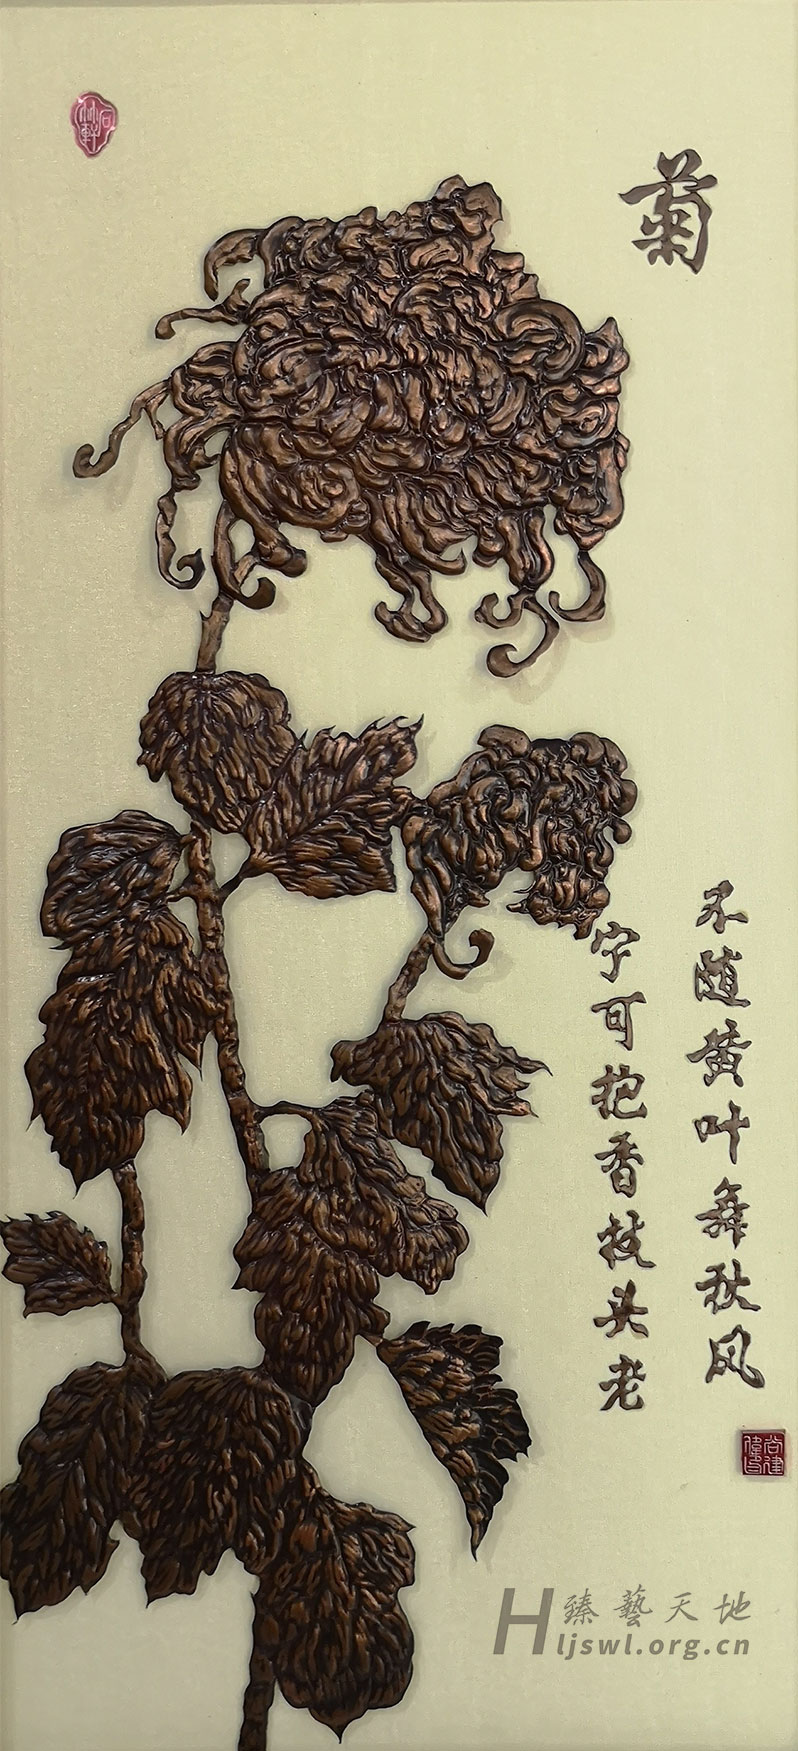 菊
不随黄叶舞秋风
宁可抱香枝头老
臻藝天地
Hljswl.org.cn